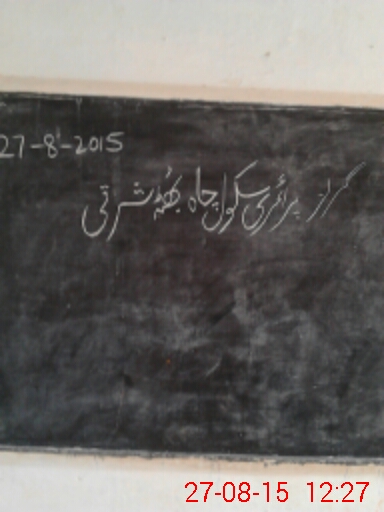 27-8-2015
گرلز پرائمری سکول چاہ بھٹہ شرقی
27-08-15 12:27